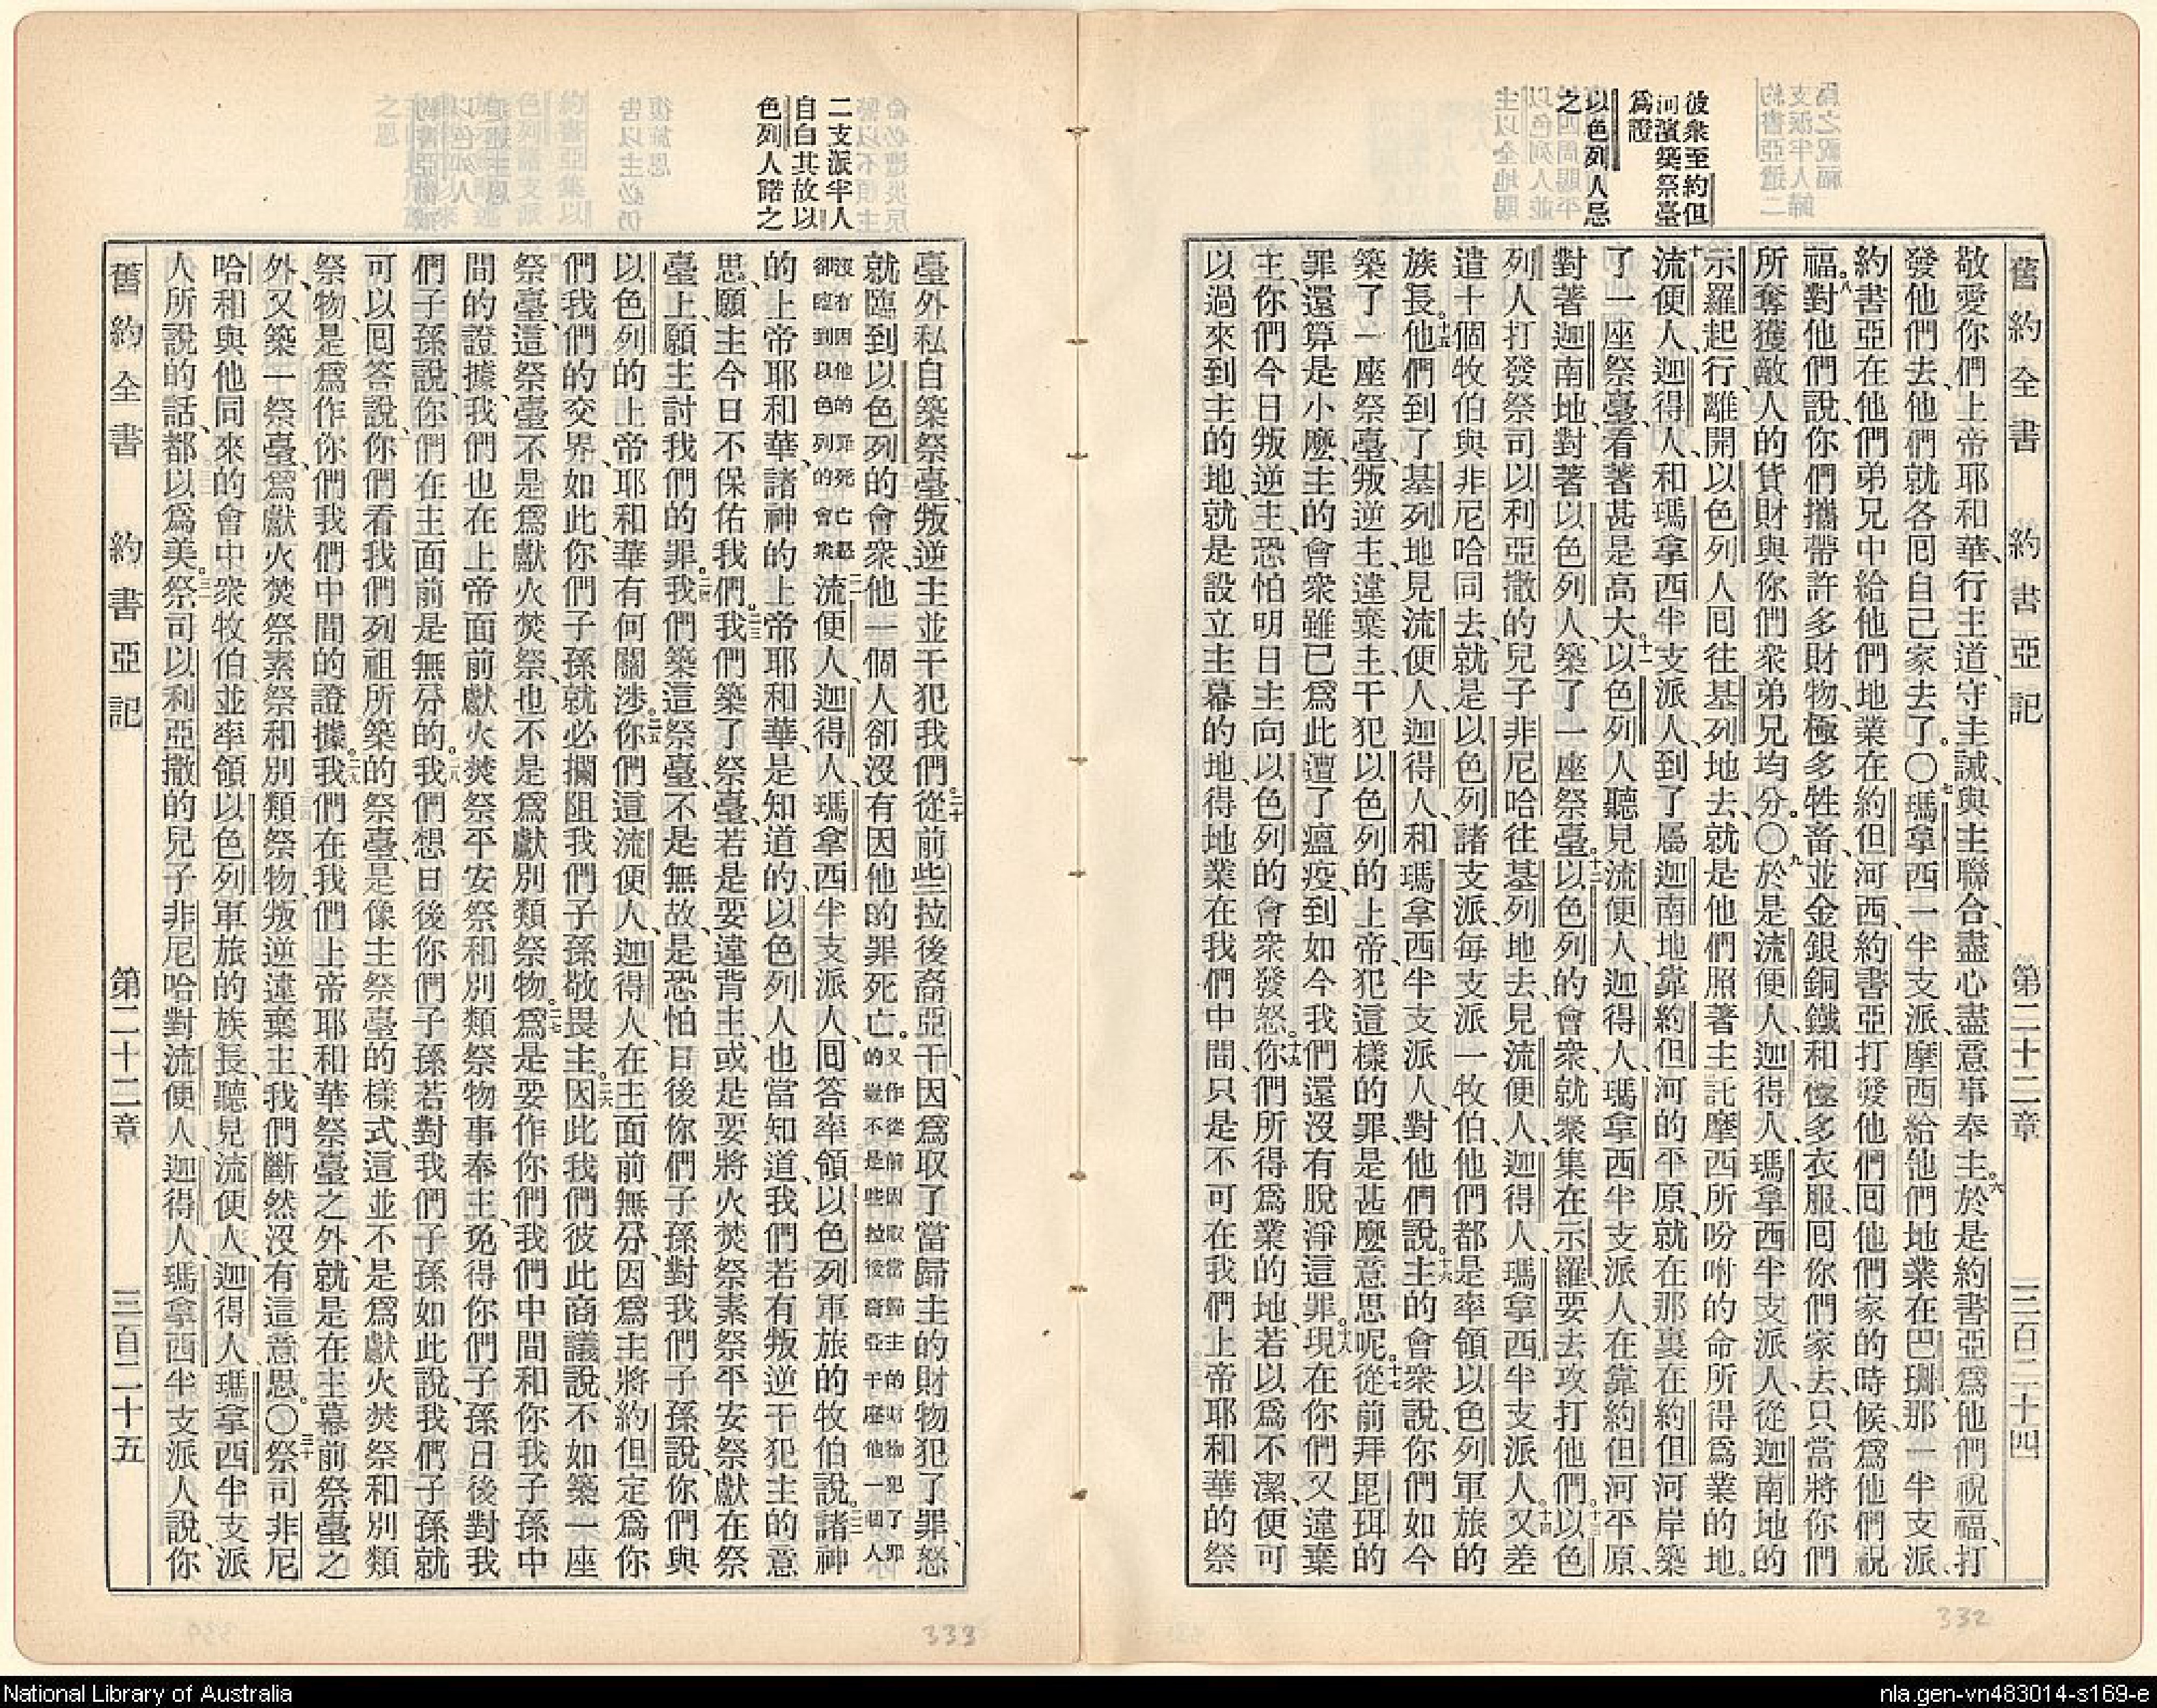 舊約全書 約書亞記 第二十二章 三百二十四
彼衆至約但
河濱築祭臺
爲證
以色列人忌
之
敬愛你們上帝耶和華、行主道、守主誡、與主聯合、盡心盡意事奉主。六於是約書亞爲他們祝福、打
發他們去、他們就各囘自己家去了。〇七瑪拿西一半支派、摩西給他們地業在巴珊、那一半支派、
約書亞在他們弟兄中給他們地業在約但河西、約書亞打發他們囘他們家的時候、爲他們祝
福。八對他們說、你們攜帶許多財物、極多牲畜、並金銀銅鐵、和極多衣服、囘你們家去、只當將你們
所奪獲敵人的貨財與你們衆弟兄均分。〇九於是流便人、迦得人、瑪拿西半支派人、從迦南地的
示羅起行、離開以色列人囘往基列地去、就是他們照著主託摩西所吩咐的命所得爲業的地。
十流便人、迦得人、和瑪拿西半支派人、到了屬迦南地靠約但河的平原、就在那裏在約但河岸築
了一座祭臺、看著甚是高大。十一以色列人聽見流便人、迦得人、瑪拿西半支派人、在靠約但河平原、
對著迦南地、對著以色列人、築了一座祭臺。十二以色列的會衆、就聚集在示羅、要去攻打他們。十三以色
列人打發祭司以利亞撒的兒子非尼哈往基列地去、見流便人、迦得人、瑪拿西半支派人。十四又差
遣十個牧伯與非尼哈同去、就是以色列諸支派、每支派一牧伯、他們都是率領以色列軍旅的
族長。十五他們到了基列地見流便人、迦得人、和瑪拿西半支派人、對他們說。十六主的會衆說、你們如今
築了一座祭臺、叛逆主、違棄主、干犯以色列的上帝、犯這樣的罪、是甚麼意思呢。十七從前拜毘珥的
罪還算是小麼、主的會衆雖已爲此遭了瘟疫、到如今我們還沒有脫淨這罪。十八現在你們又違棄
主、你們今日叛逆主、恐怕明日主向以色列的會衆發怒。十九你們所得爲業的地、若以爲不潔、便可
以過來到主的地、就是設立主幕的地、得地業在我們中間、只是不可在我們上帝耶和華的祭
二支派半人
自白其故以
色列人諾之
臺外私自築祭臺、叛逆主並干犯我們。二十從前些拉後裔亞干、因爲取了當歸主的財物犯了罪、怒
就臨到以色列的會衆、他一個人卻沒有因他的罪死亡。又作從前因取當歸主的財物犯了罪的豈不是些拉後裔亞干麼他一個人
沒有因他的罪死亡怒卻臨到以色列的會衆二一流便人、迦得人、瑪拿西半支派人、囘答率領以色列軍旅的牧伯說。二二諸神
的上帝耶和華、諸神的上帝耶和華、是知道的、以色列人也當知道、我們若有叛逆干犯主的意
思、願主今日不保佑我們。二三我們築了祭臺、若是要違背主、或是要將火焚祭素祭平安祭獻在祭
臺上、願主討我們的罪。二四我們築這祭臺、不是無故、是恐怕日後你們子孫對我們子孫說、你們與
以色列的上帝耶和華有何關涉。二五你們這流便人、迦得人、在主面前無分、因爲主將約但定爲你
們我們的交界、如此你們子孫就必攔阻我們子孫敬畏主。二六因此我們彼此商議說、不如築一座
祭臺、這祭臺不是爲獻火焚祭、也不是爲獻別類祭物。二七爲是要作你們我們中間和你我子孫中
間的證據、我們也在上帝面前獻火焚祭平安祭和別類祭物事奉主、免得你們子孫日後對我
們子孫說、你們在主面前是無分的。二八我們想日後你們子孫若對我們子孫如此說、我們子孫就
可以囘答說、你們看我們列祖所築的祭臺、是像主祭臺的樣式、這並不是爲獻火焚祭和別類
祭物、是爲作你們我們中間的證據。二九我們在我們上帝耶和華祭臺之外、就是在主幕前祭臺之
外、又築一祭臺、爲獻火焚祭素祭和別類祭物、叛逆違棄主、我們斷然沒有這意思。〇三十祭司非尼
哈和與他同來的會中衆牧伯、並率領以色列軍旅的族長、聽見流便人、迦得人、瑪拿西半支派
人所說的話、都以爲美。三一祭司以利亞撒的兒子非尼哈對流便人、迦得人、瑪拿西半支派人說、你
舊約全書 約書亞記 第二十二章 三百二十五
332
333
National Library of Australia
nla.gen-vn483014-s169-e